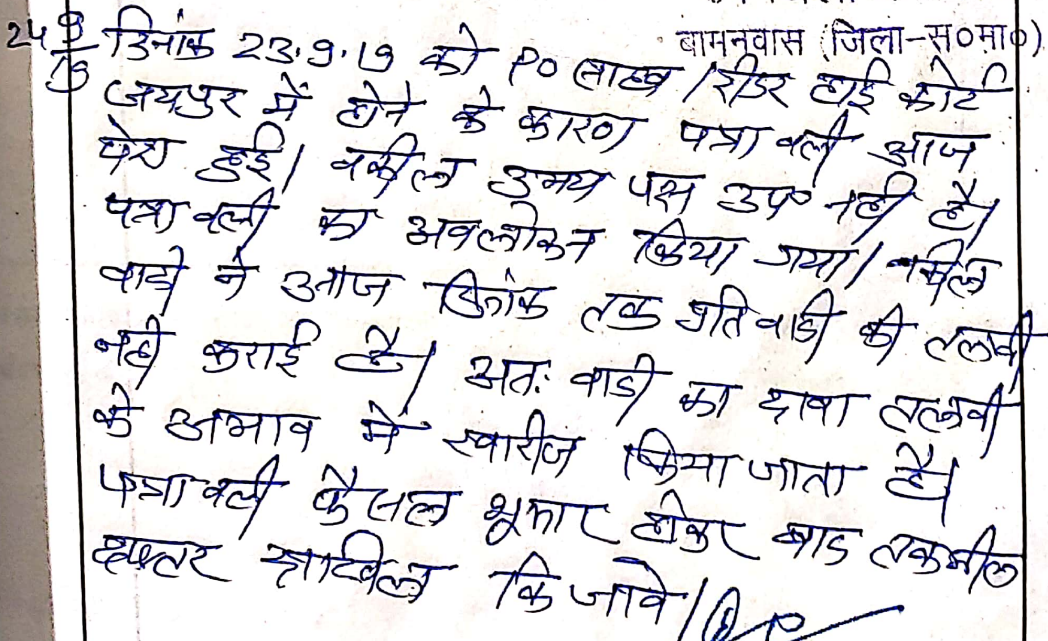 बामनवास (जिला-स०मा०)
24/9/19 दिनांक 23.9.19 को PO साहब / रीडर हाई कोर्ट
जयपुर में होने के कारण पत्रावली आज
पेश हुई। वकील उभय पक्ष उप० नही है।
पत्रावली का अवलोकन किया गया। वकील
वादी ने आज दिनांक तक प्रतिवादी की तलबी
नही कराई है। अतः वादी का दावा तलबी
के अभाव में खारीज किया जाता है।
पत्रावली फैसल शूमार होकर बाद तकमील
दफ्तर दाखिल कि जावे।